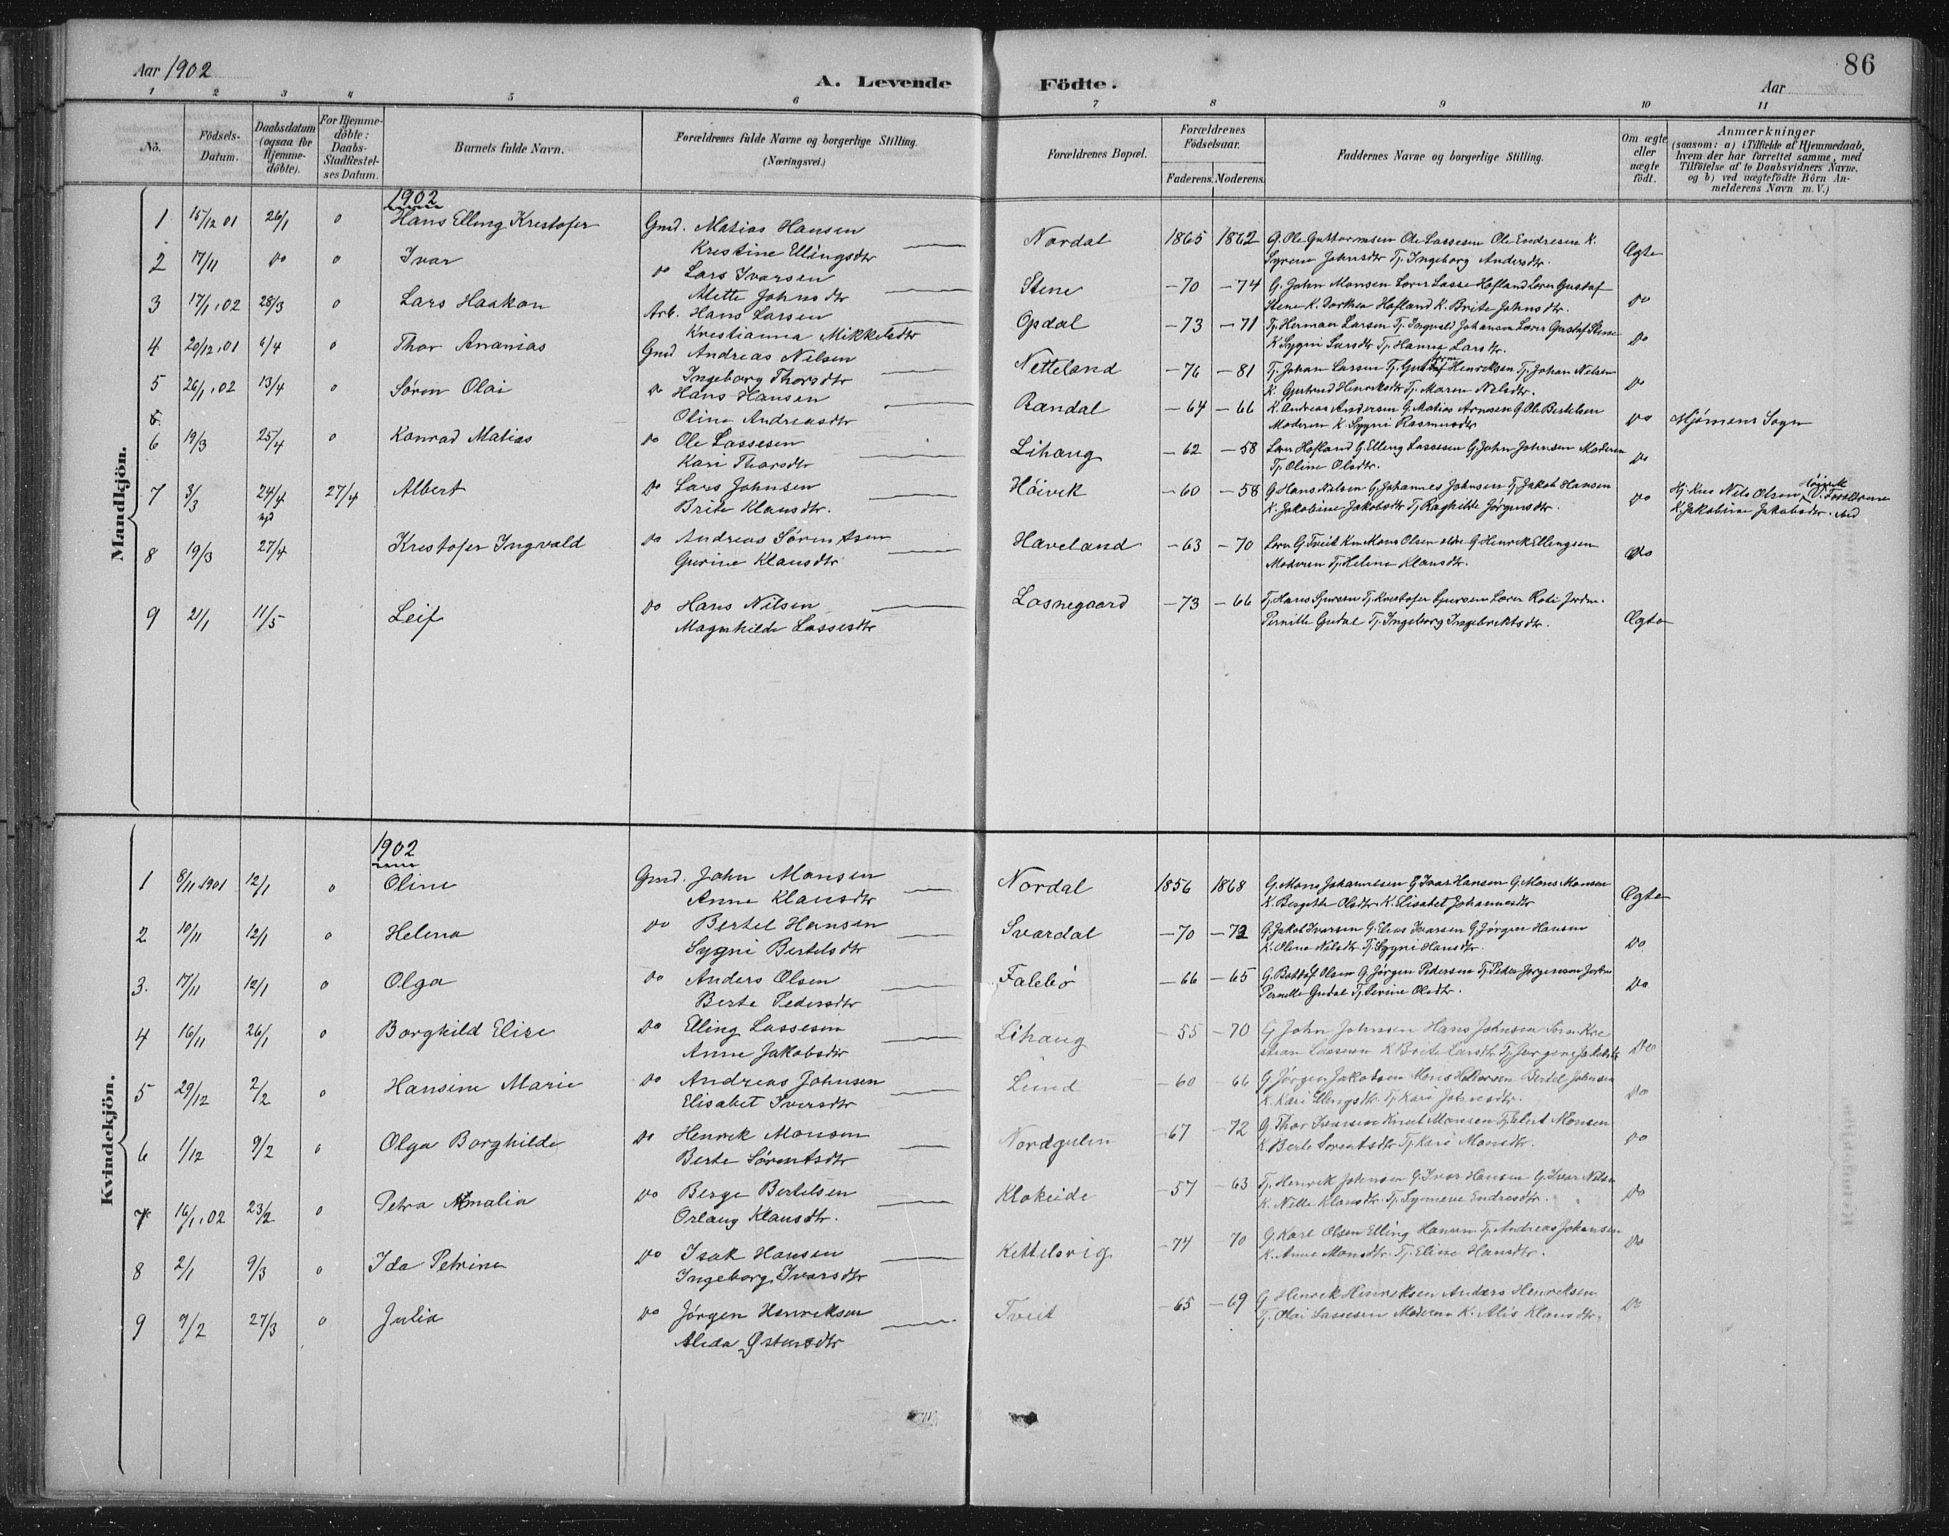 86
Aar 1902
A. Levende Födte.
Aar
1 2 3 4 5 6 7 8 9 10 11
No.
Födsels-Datum.
Daabsdatum (ogsaa for Hjemme-döbte).
For Hjemme-döbte: Daabs-Stadfæstel-ses Datum.
Barnets fulde Navn.
Forældrenes fulde Navne og borgerlige Stilling. (Næringsvei.)
Forældrenes Bopæl.
Forældrenes Födselsaar.
Faderens. Moderens.
Faddernes Navne og borgerlige Stilling.
Om ægte eller uægte födt.
Anmærkninger (saasom: a) i Tilfælde af Hjemmedaab, hvem der har forrettet samme, med Tilföielse af to Daabsvidners Navne. og b) ved uægtefödte Börn An-melderens Navn m. V.)
Mandkjön.
1902
1 15/12 01 26/1 0 Hans Elling Krestofer Gmd. Matias Hansen Nordal 1865 1862 G. Ole Guttormsen Ole Lassesen Ole Endresen K.
Krestine Ellingsdtr Syrene Johnsdtr Tj. Ingeborg Andersdtr Ægte
2 17/11 do 0 Ivar do Lars Ivarsen Stene -70 -74 G. John Monsen Lærer Lasse Hofland Lærer Gustaf
Alette Johnsdtr Stene K. Dorthea Hofland K. Brite Johnsdtr. do
3 17/1, 02 28/3 0 Lars Haakon Arb. Hans Larsen Opdal -73 -71 Tj. Herman Larsen Tj. Ingvald Johansen Lærer Gustaf Stene
Krestianna Mikkelsdtr K. Sygni Larsdtr Tj. Hanna Larsdtr. do
4 20/12, 01 6/4 0 Thor Ananias Gmd Andreas Nilsen Netteland -76 -81 Tj. Johan Larsen Henriksen Tj. Johan Nilsen
Ingeborg Thorsdtr K. Gjertrud Henriksdtr Tj. Maren Nilsdtr. do
5 26/1, 02 13/4 0 Søren Olai do Hans Hansen Randal -64 -66 K. Andreas Andersen G. Matias Arnesen G. Ole Bertelsen
Oline Andreasdtr Moderen K. Sygni Rasmusdtr do Mjömens Sogn
6 19/3 25/4 0 Konrad Matias do Ole Lassesen Lihaug -62 -58 Lærer Hofland G. Elling Lassesen G. John Johnsen Moderen
Kari Thorsdtr Tj. Oline Olsdtr. do
7 3/3 24/4 27/4 Albert do Lars Johnsen Höivik -60 -58 G. Hans Nilsen G. Johannes Johnsen Tj. Jakob Hansen
Brite Klausdtr. K. Jakobine Jakobsdtr Tj. Raghilde Jörgensdtr. do Nils Olsen Höivik K. Jakobine Jakobsdtr.
8 19/3 27/4 Krestofer Ingvald do Andreas Sörentsen Haveland -63 -70 Mons Olsen G. Henrik Ellingsen
Gurine Klausdtr Moderen Tj. Helene Klausdtr. do
9 21/1 11/5 Leif do Hans Nilsen Losnegaard -73 -66 Tj. Hans Tj. Krestofer Lærer
Magnhilde Lassesdtr Pernille Gudal Tj. Ingeborg Ingebriktsdtr. Ægte
Kvindekjön.
1902
1 8/11 1901 12/1 0 Oline Gmd. John Monsen Nordal 1856 1868 G. Mons Johannesen G. Ivar Hansen G. Mons Monsen
Anne Klausdtr K. Bergitte Olsdtr K. Lisabet Johannesdtr Ægte
2 10/11 12/1 0 Helena do Bertel Hansen Svardal -70 -72 G. Jakob Ivarsen G. Elias Ivarsen G. Jörgen Hansen
Sygni Bertelsdtr K. Olena Nilsdtr. Tj. Sygni Hansdtr. do
3. 17/11 12/1 0 Olga do Anders Olsen Falebö -66 -65 G. Bottolf Olsen G. Jörgen Pedersen Tj. Peder Jörgensen
Berte Pedersdtr Pernille Gudal Tj. Serine Olsdtr. do
4 16/11 26/1 0 Borghild Elise do Elling Lassesen Lihaug -55 -70 G. John Johnsen Hans Johnsen
Anne Jakobsdtr Lassesen K. Brite Larsdtr Tj. do
5 29/12 2/2 0 Hansine Marie do Andreas Johnsen Lund -60 -66 G. Jörgen Jakobsen Mons Bertel Johnsen
Elisabet Iversdtr K. Kari Ellingsdtr. Tj. Kari Johnsdtr. do
6 1/12 9/2 0 Olga Borghilde do Henrik Monsen Nordgulen -67 -72 G. Thor Knut Monsen Monsen
Berte Sörentsdtr K. Berte Sorentsdtr Tj. Kari Monsdtr. do
7 16/1, 02 23/2 0 Petra Amalia do Berge Bertelsen Klokeide -57 -63 Tj. Henrik Johnsen G. Ivar Hansen G. Ivar Nilsen
Orlaug Klausdtr. K. Nille Klausdtr. Tj. Synneve Endresdtr. do
8 2/1 9/3 0 Ida Petrina do Isak Hansen Kettelsvig -74 -70 G. Karl Olsen Elling Hansen Tj. Andreas Johansen
Ingeborg Ivarsdtr K. Anne Monsdtr. Tj. Eline Hansdtr. do
9 9/2 27/3 0 Julia do Jörgen Henriksen Tveit -65 -69 G. Henrik Henriksen Anders Henriksen
Alida Östensdtr Tj. Olai Lassesen Moderen K. Alis Klausdtr. do